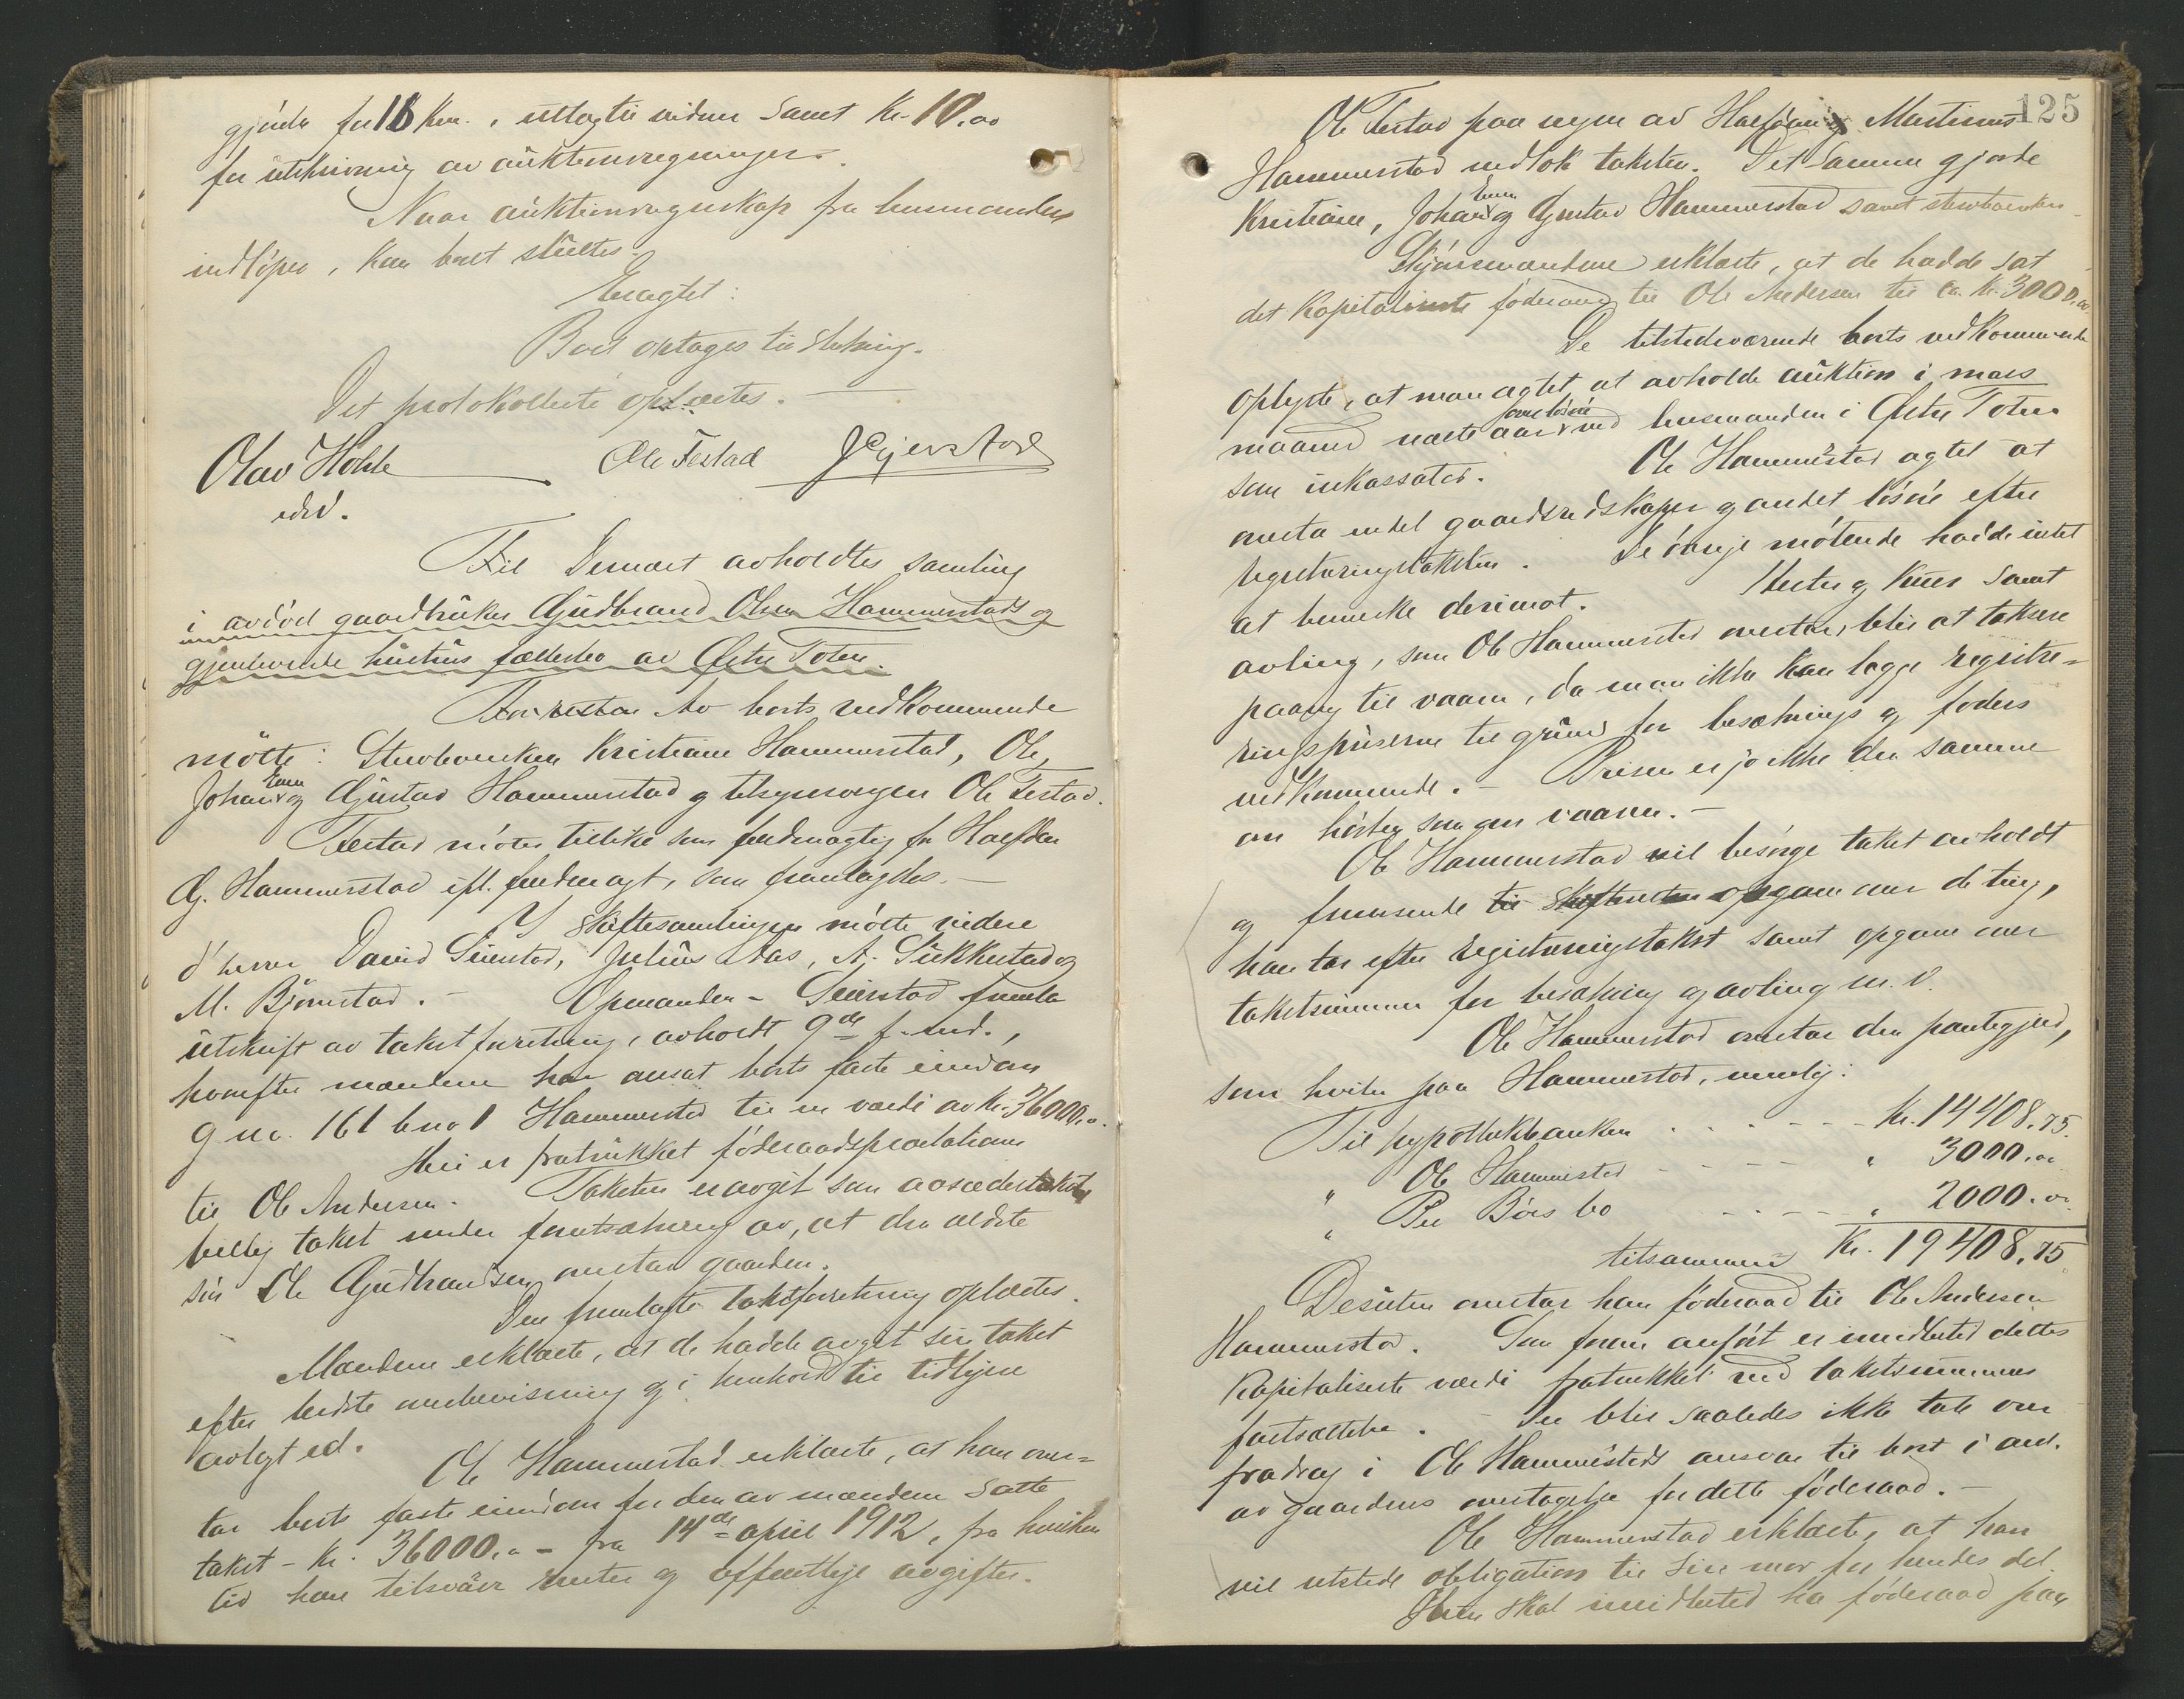 gjorde for 18 km. , uttog til vidner samt kr. 10.00
for utskrivning av auktionsregninger.
Naar auktionsregnskap fra lensmanden
indløper, kan boet sluttes.
Eragtet:
Boet optages til slutning.
Det protokollerte oplæstes. —
Olav Hohle Ole Festad J. Gjerstad
edsv.
Til Dernæst avholdtes samling
i avdød gaardbruker Gudbrand Olsen Hammerstads og
gjenlevende hustrus fællesbo av Østre Toten.
For retten Av boets vedkommende
møtte: Stervboenken Kristiane Hammerstad, Ole,
Johan Even og Gustav Hammerstad og tilsynsvergen Ole Festad.
Festad møter tillike som fuldmægtig for Halfdan
G. Hammerstad ifl. fuldmagt, som fremlagdes. —
I skiftesamlingen møtte videre
d'herrer David Seierstad, Julius Aas, A. Sukkestad og
M. Bjørnstad. — Opmanden - Seierstad fremla
utskrift av takstforretning, avholdt 9de f. md.,
hvorefter mændene har ansat boets faste eiendom
g.no. 161 b.no 1 Hammerstad til en værdi av kr. 36000.00.
Heri er fratrukket føderaadspræstationer
til Ole Andersen. Taksten er avgit som aasædestakst,
billig takst under forutsætning av, at den ældste
søn Ole Gudbrandsen overtar gaarden.
Den fremlagte takstforretning oplæstes.
Mændene erklærte, at de hadde avgit sin takst
efter bedste overbevisning og i henhold til tidligere
avlagt ed.
Ole Hammerstad erklærte, at han over=
tar boets faste eiendom for den av mændene satte
takst - kr. 36000.00 - fra 14de april 1912, fra hvilken
tid han tilsvarer renter og offentlige avgifter.
125
Ole Festad paa vegne av Halfdan og Martinus
Hammerstad vedtok taksten. Det samme gjorde
Kristiane, Johan Even og Gustav Hammerstad samt stervboenken
Skjønsmændene erklærte, at de hadde sat
det kapitaliserte føderaad til Ole Andersen til ca. kr. 3000.00.
De tilstedeværende boets vedkommende
oplyste, at man agtet at avholde auktion i mars
maaned næste aar over løsøre ved lensmanden i Østre Toten
som inkassator. Ole Hammerstad agtet at
overta endel gaardsredskaper og andet løsøre efter
registreringstaksten. De øvrige møtende hadde intet
at bemerke derimot. Hester og kuer samt
avling, som Ole Hammerstad overtar, blir at taksere
paany til vaaren, da man ikke kan lægge registre=
ringspriserne til grund for besætnings og foders
vedkommende. — Prisen er jo ikke den samme
om høsten som om vaaren. —
Ole Hammerstad vil besørge takst avholdt
og fremsende til skifteretten opgave over de ting,
han tar efter registreringstakst samt opgave over
takstsummen for besætning og avling m. v.
Ole Hammerstad overtar den pantegjæld,
som hviler paa Hammerstad, nemlig:
Til hypothekbanken . . . . . . Kr. 14408.75.
" Ole Hammerstad - - - - " 3000.00
" Per Børs bo - - - - - " 2000.00
tilsammen Kr. 19408.75
Desuten overtar han føderaad til Ole Andersen
Hammerstad. Som foran anført er imidlertid dettes
kapitaliserte værdi fratrukket ved takstsummens
fastsættelse. Der blir saaledes ikke tale om
fradrag i Ole Hammerstads ansvar til boet i anl.
av gaardens overtagelse for dette føderaad. —
Ole Hammerstad erklærte, at han
vil utstede obligation til sin mor for hendes del.
Hun skal imidlertid ha føderaad paa